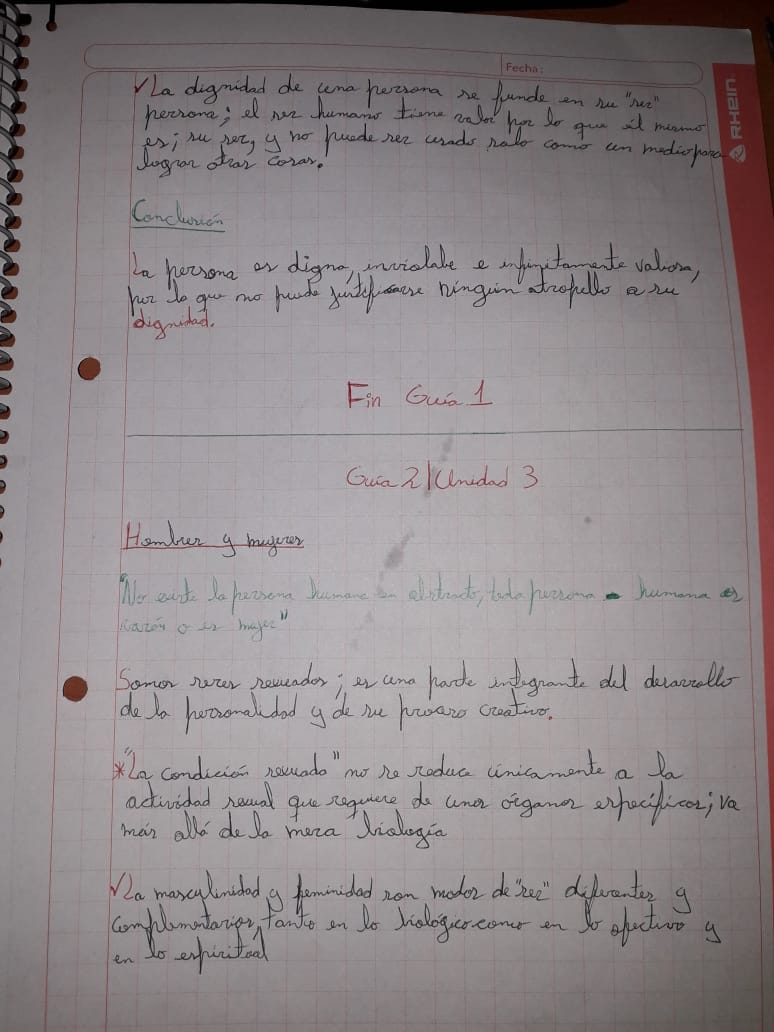 Fecha:
RHEIN
√La dignidad de una persona se funde en su "ser"
persona; el ser humano tiene valor por lo que él mismo
es; su ser, y no puede ser usado solo como un medio para
lograr otras cosas.
Conclusión
La persona es digna, inviolabe e infinitamente valiosa,
por lo que no puede justificarse ningún atropello a su
dignidad.
Fin Guía 1
Guía 2|Unidad 3
Hombres y mujeres
"No existe la persona humana en abstracto, toda persona humana es
varón o es mujer"
Somos seres sexuados; es una parte integrante del desarrollo
de la personalidad y de su proceso creativo.
*"La condición sexuado" no se reduce únicamente a la
actividad sexual que requiere de unos órganos específicos; va
más allá de la mera biología
√La masculinidad y feminidad son modos de "ser" diferentes y
complementarios, tanto en lo biológico como en lo afectivo y
en lo espiritual